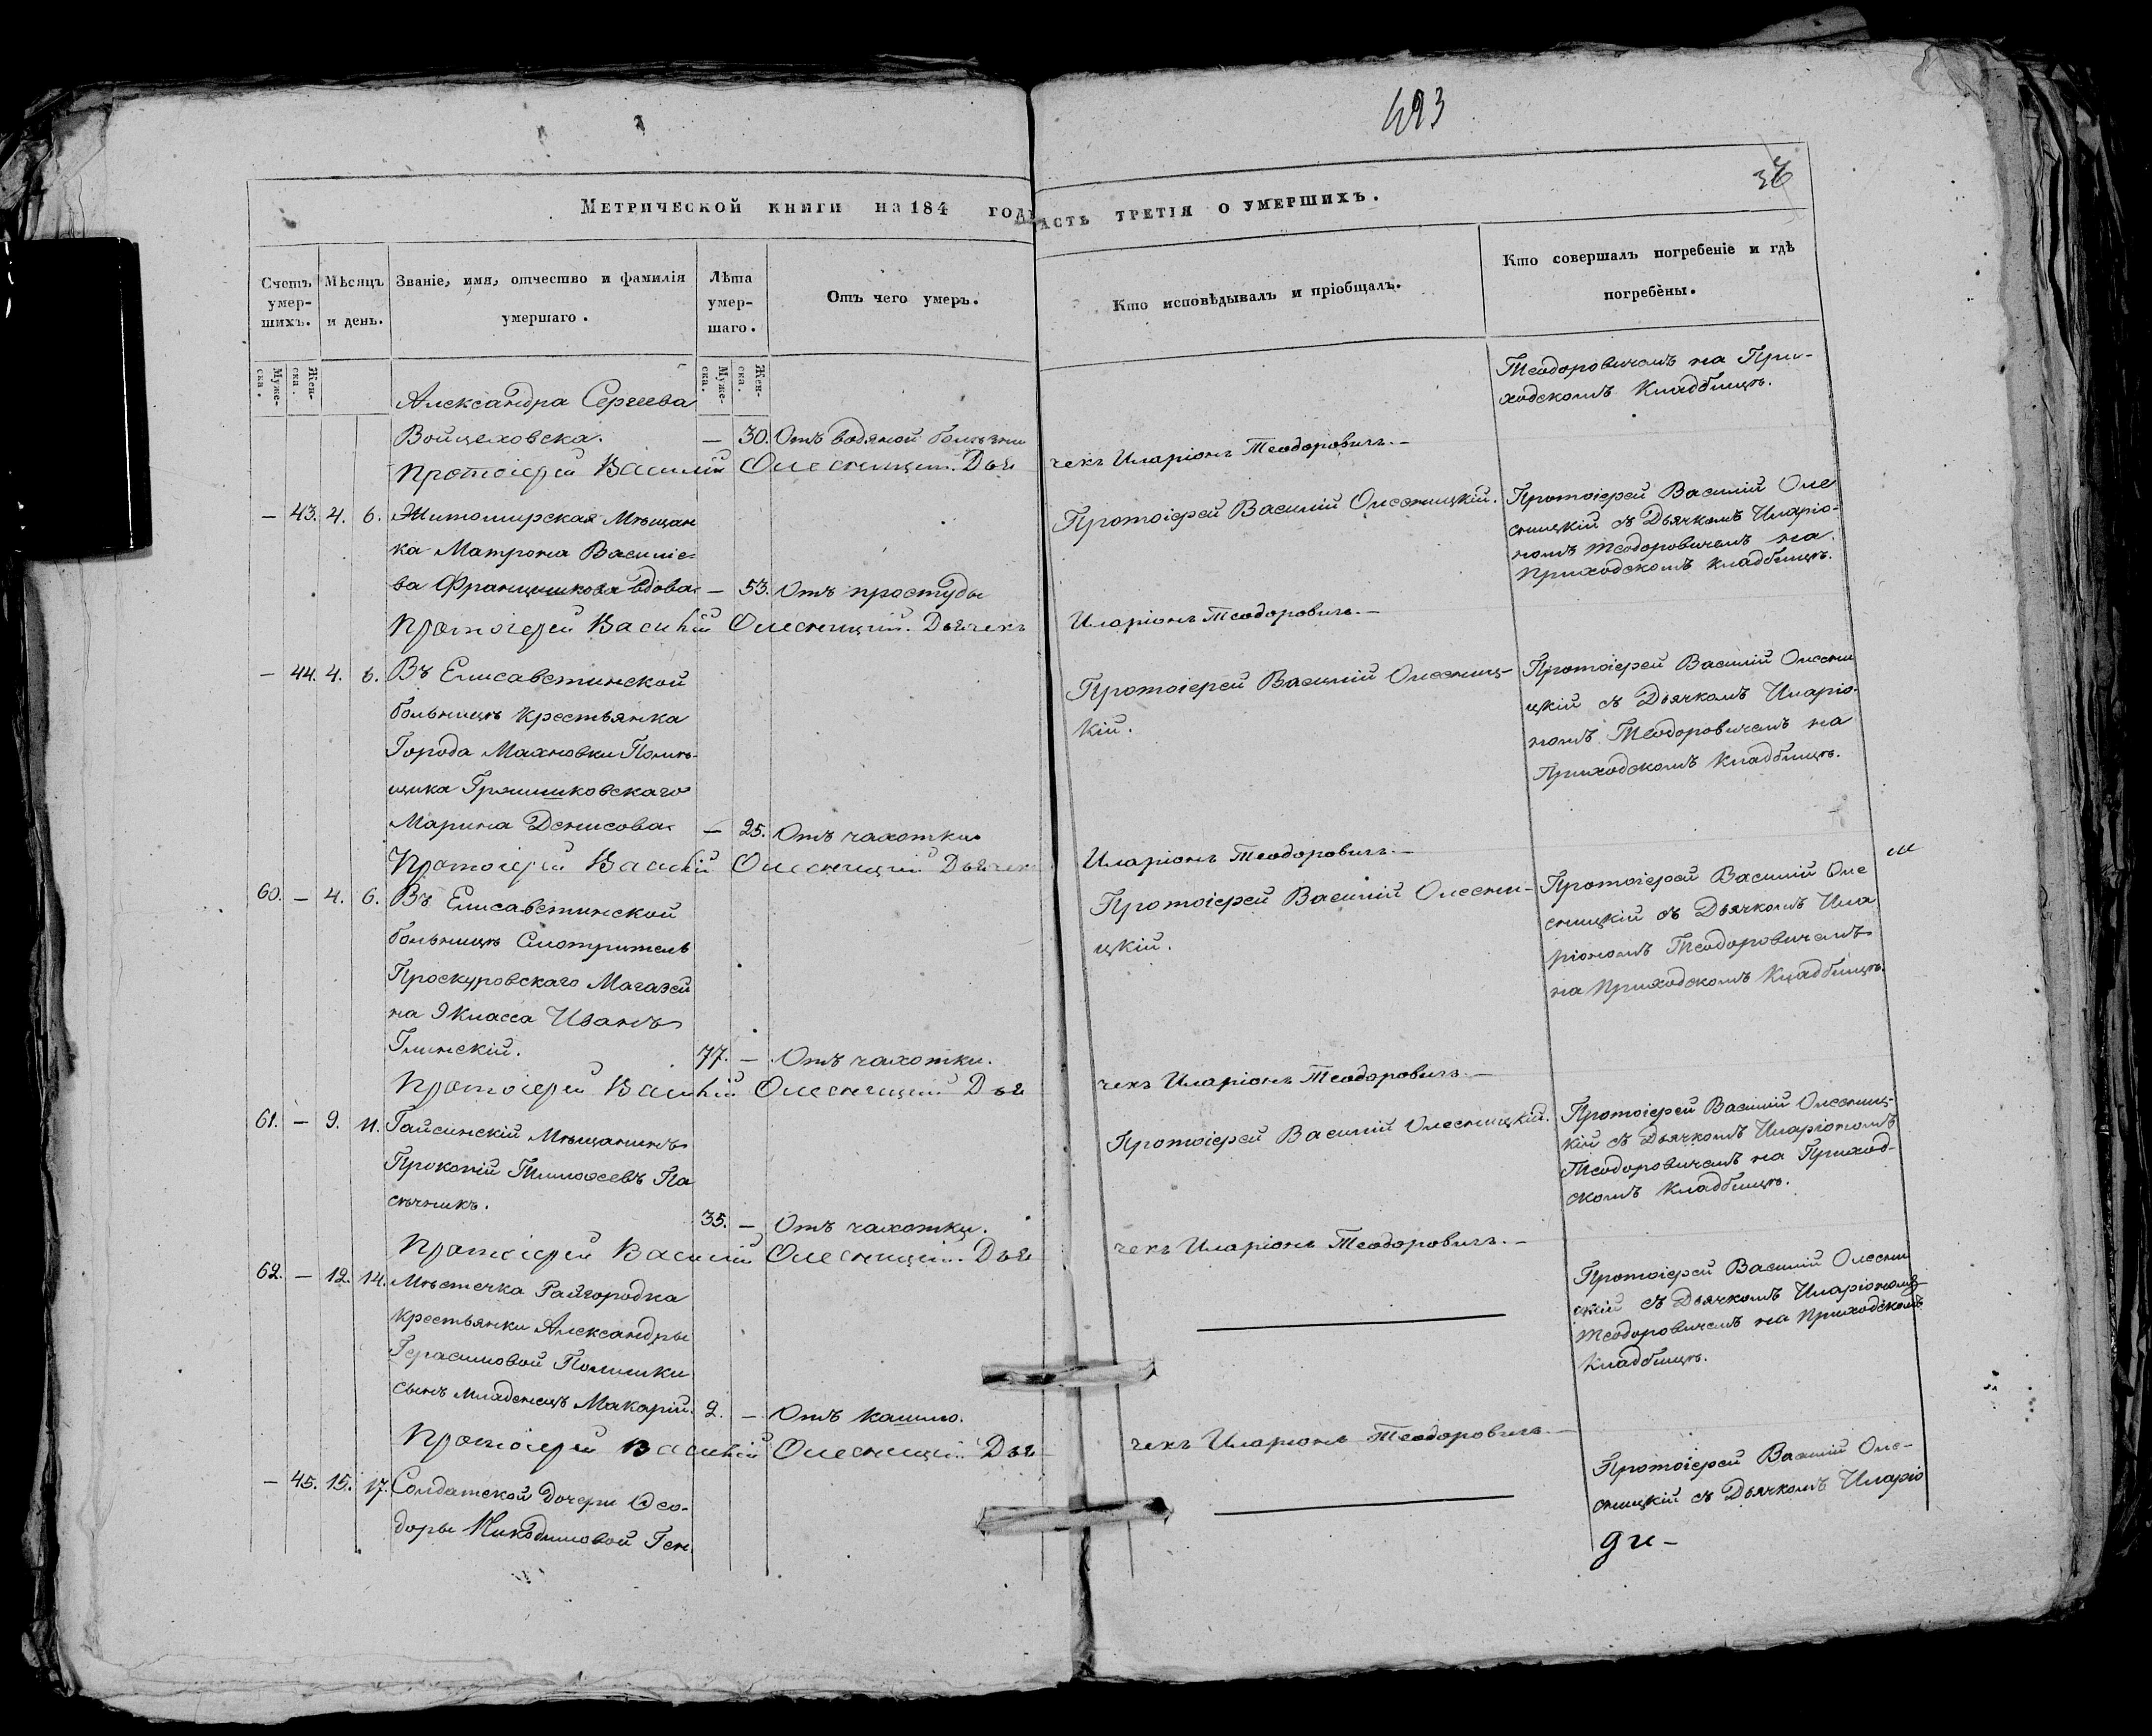 493
36
Метрической книги на 184 годъ
часть третія о умершихъ.
Счетъ умер-шихъ.
Мѣсяцъ и день.
Званіе, имя, отчество и фамилія умершаго.
Лѣта умер-шаго.
Отъ чего умеръ.
Кто исповѣдывалъ и пріобщалъ.
Кто совершалъ погребеніе и гдѣ погребены.
Муже-ска.
Жен-ска.
Муже-ска.
Жен-ска.
Александра Сергеева
Войцеховска. — 30. Отъ водяной болѣзни
Теодоровичемъ на При-
ходскомъ Кладбищѣ.
Протоіерей Василій Олесницкій. Дья чекъ Иларіонъ Теодоровичъ.—
— 43. 4. 6. Житомирская Мѣщан
ка Матрона Василіе-
ва Францишкова вдова — 53. Отъ простуды
Протоіерей Василій Олесницкій.
Протоіерей Василій Оле
сницкій съ Дьячкомъ Иларіо-
номъ Теодоровичемъ на
Приходскомъ Кладбищѣ.
Протоіерей Василій Олесницкій. Дьячекъ Иларіонъ Теодоровичъ.—
— 44. 4. 6. Въ Елисаветинской
больницѣ Крестьянка
Города Махновки Помѣ-
щика
Марина Денисова — 25. Отъ чахотки.
Протоіерей Василій Олесниц-
кій.
Протоіерей Василій Олесни
цкій съ Дьячкомъ Иларіо-
номъ Теодоровичемъ на
Приходскомъ Кладбищѣ.
Протоіерей Василій Олесницкій Дьячекъ Иларіонъ Теодоровичъ.—
60. — 4. 6. Въ Елисаветинской
больницѣ Смотритель
Проскуровскаго Магазей
на 9 Класса Иванъ
Глинскій. 77. — Отъ чахотки.
Протоіерей Василій Олесни-
цкій.
Протоіерей Василій Оле
сницкій съ Дьячкомъ Ила
ріономъ Теодоровичемъ
на Приходскомъ Кладбищѣ.
Протоіерей Василій Олесницкій Дья чекъ Иларіонъ Теодоровичъ.—
61. — 9. 11. Гайсинскій Мѣщанинъ
Прокопій Тимоѳеевъ Па
сѣчникъ. 35. — Отъ чахотки.
Протоіерей Василій Олесницкій.
Протоіерей Василій Олесниц-
кій съ Дьячкомъ Иларіономъ
Теодоровичемъ на Приход-
скомъ Кладбищѣ.
Протоіерей Василій Олесницкій. Дья чекъ Иларіонъ Теодоровичъ.—
62. — 12. 14. Мѣстечка Райгородка
крестьянки Александры
Герасимовой
сынъ младенецъ Макарій. 2. — Отъ кашлю.
Протоіерей Василій Олесни
цкій съ Дьячкомъ Иларіономъ
Теодоровичемъ на Приходскомъ
Кладбищѣ.
Протоіерей Василій Олесницкій Дья чекъ Иларіонъ Теодоровичъ.—
— 45. 15. 17. Солдатской дочери Ѳео-
доры Никодимовой Ген
Протоіерей Василій Оле-
сницкій съ Дьячкомъ Иларіо